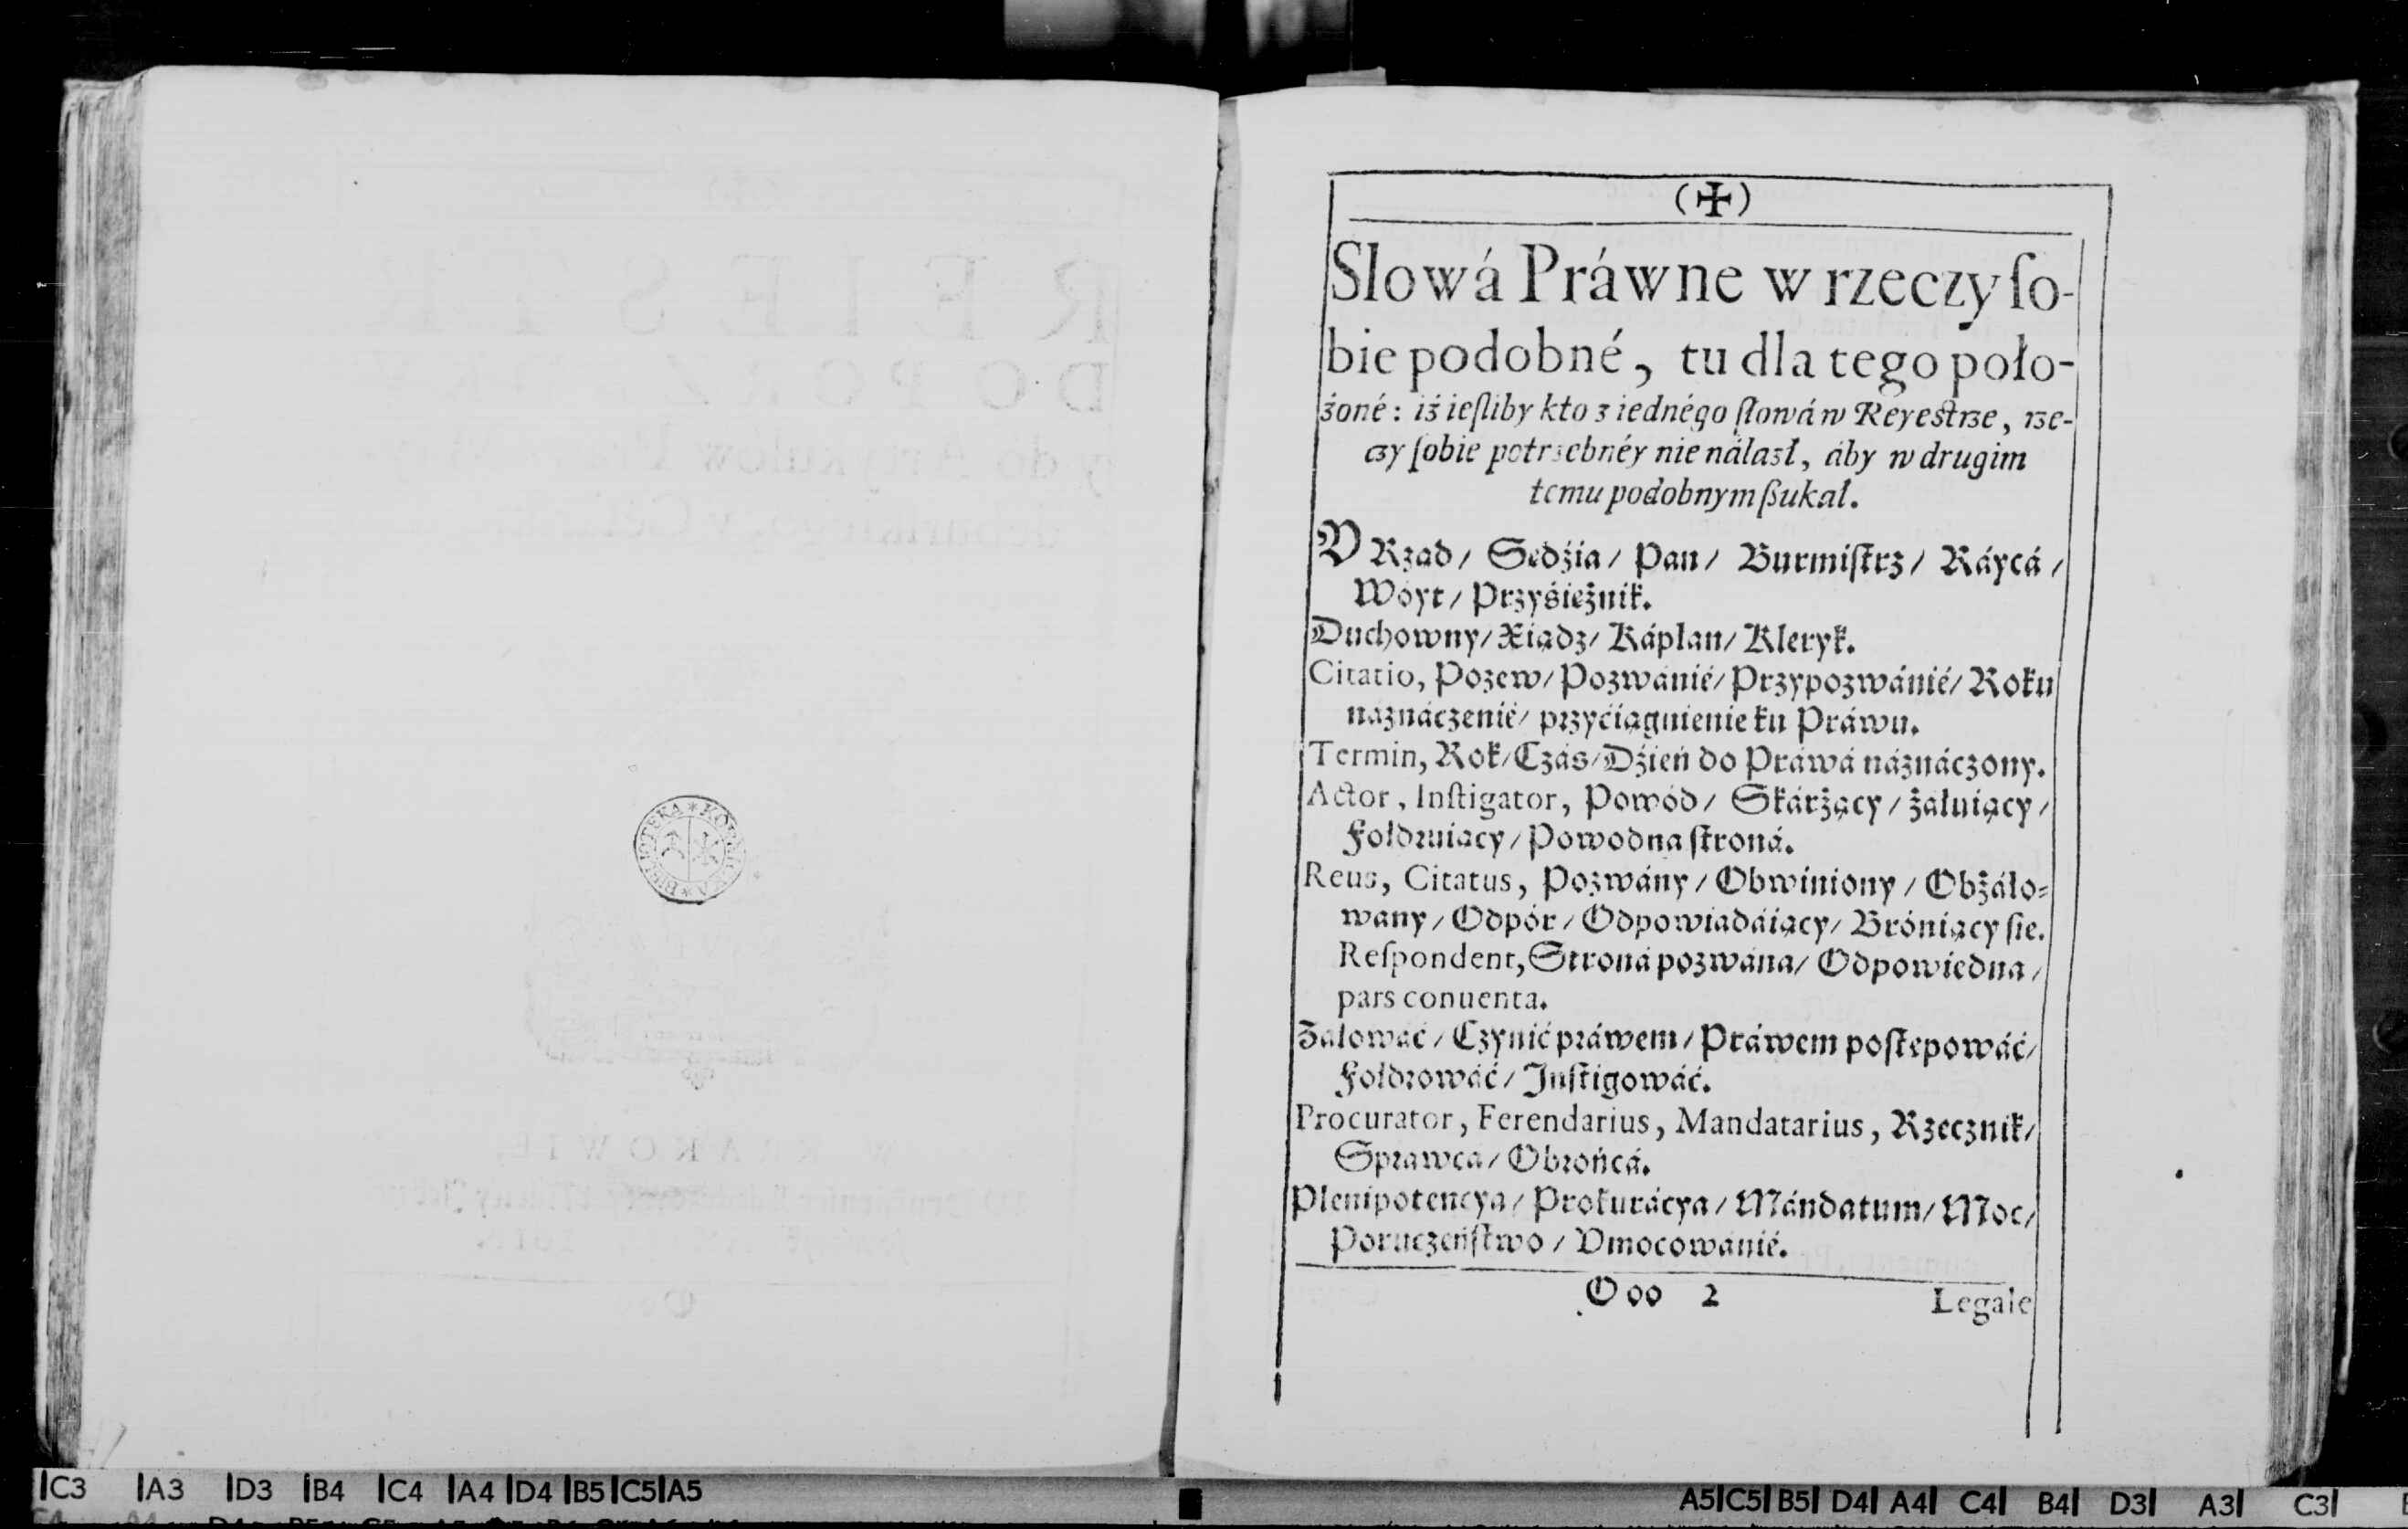 BIBLIOTEKA * KÓRNICKA *
(✠)
Slowá Práwne w rzeczy ſo-
bie podobné, tu dla tego poło-
żoné: iż ieſliby kto z iednégo ſłowá w Reyestrze, rze-
czy ſobie potrzebnéy nie nálazł, áby w drugim
temu podobnym ßukał.
VRząd / Sędźia / Pan / Burmiſtrz / Ráycá /
Wóyt / Przyśiężnik.
Duchowny / Xiądz / Kápłan / Kleryk.
Citatio, Pozew / Pozwánié / Przypozwánié / Roku
náznáczenié / przyćiągnienie ku Práwu.
Termin, Rok / Czás / Dźień do Práwá náznáczony.
Actor, Inſtigator, Powód / Skárżący / żáłuiący /
Fołdruiący / Powodna ſtroná.
Reus, Citatus, Pozwány / Obwiniony / Obżáło-
wany / Odpór / Odpowiádáiący / Bróniący ſie.
Reſpondent, Stroná pozwána / Odpowiedna /
pars conuenta.
Záłowáć / Czynić práwem / Práwem poſtępowáć /
Fołdrowáć / Inſtigowáć.
Procurator, Ferendarius, Mandatarius, Rzecznik /
Sprawca / Obrońcá.
Plenipotencya / Prokurácya / Mándatum / Moc /
Poruczeńſtwo / Vmocowánié.
Ooo 2 Legale
C3 A3 D3 B4 C4 A4 D4 B5 C5 A5
A5 C5 B5 D4 A4 C4 B4 D3 A3 C3